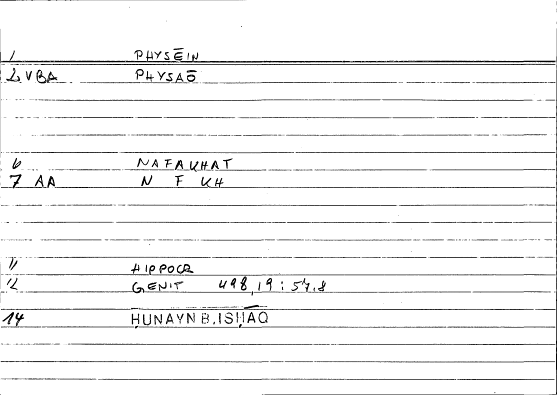 1 PHYSĒIN
2 VBA PHYSAŌ
6 NAFAKHAT
7 AA N F KH
11 HIPPOCR
12 GENIT 498,19 : 54,8
14 ḤUNAYN B. ISḤĀQ